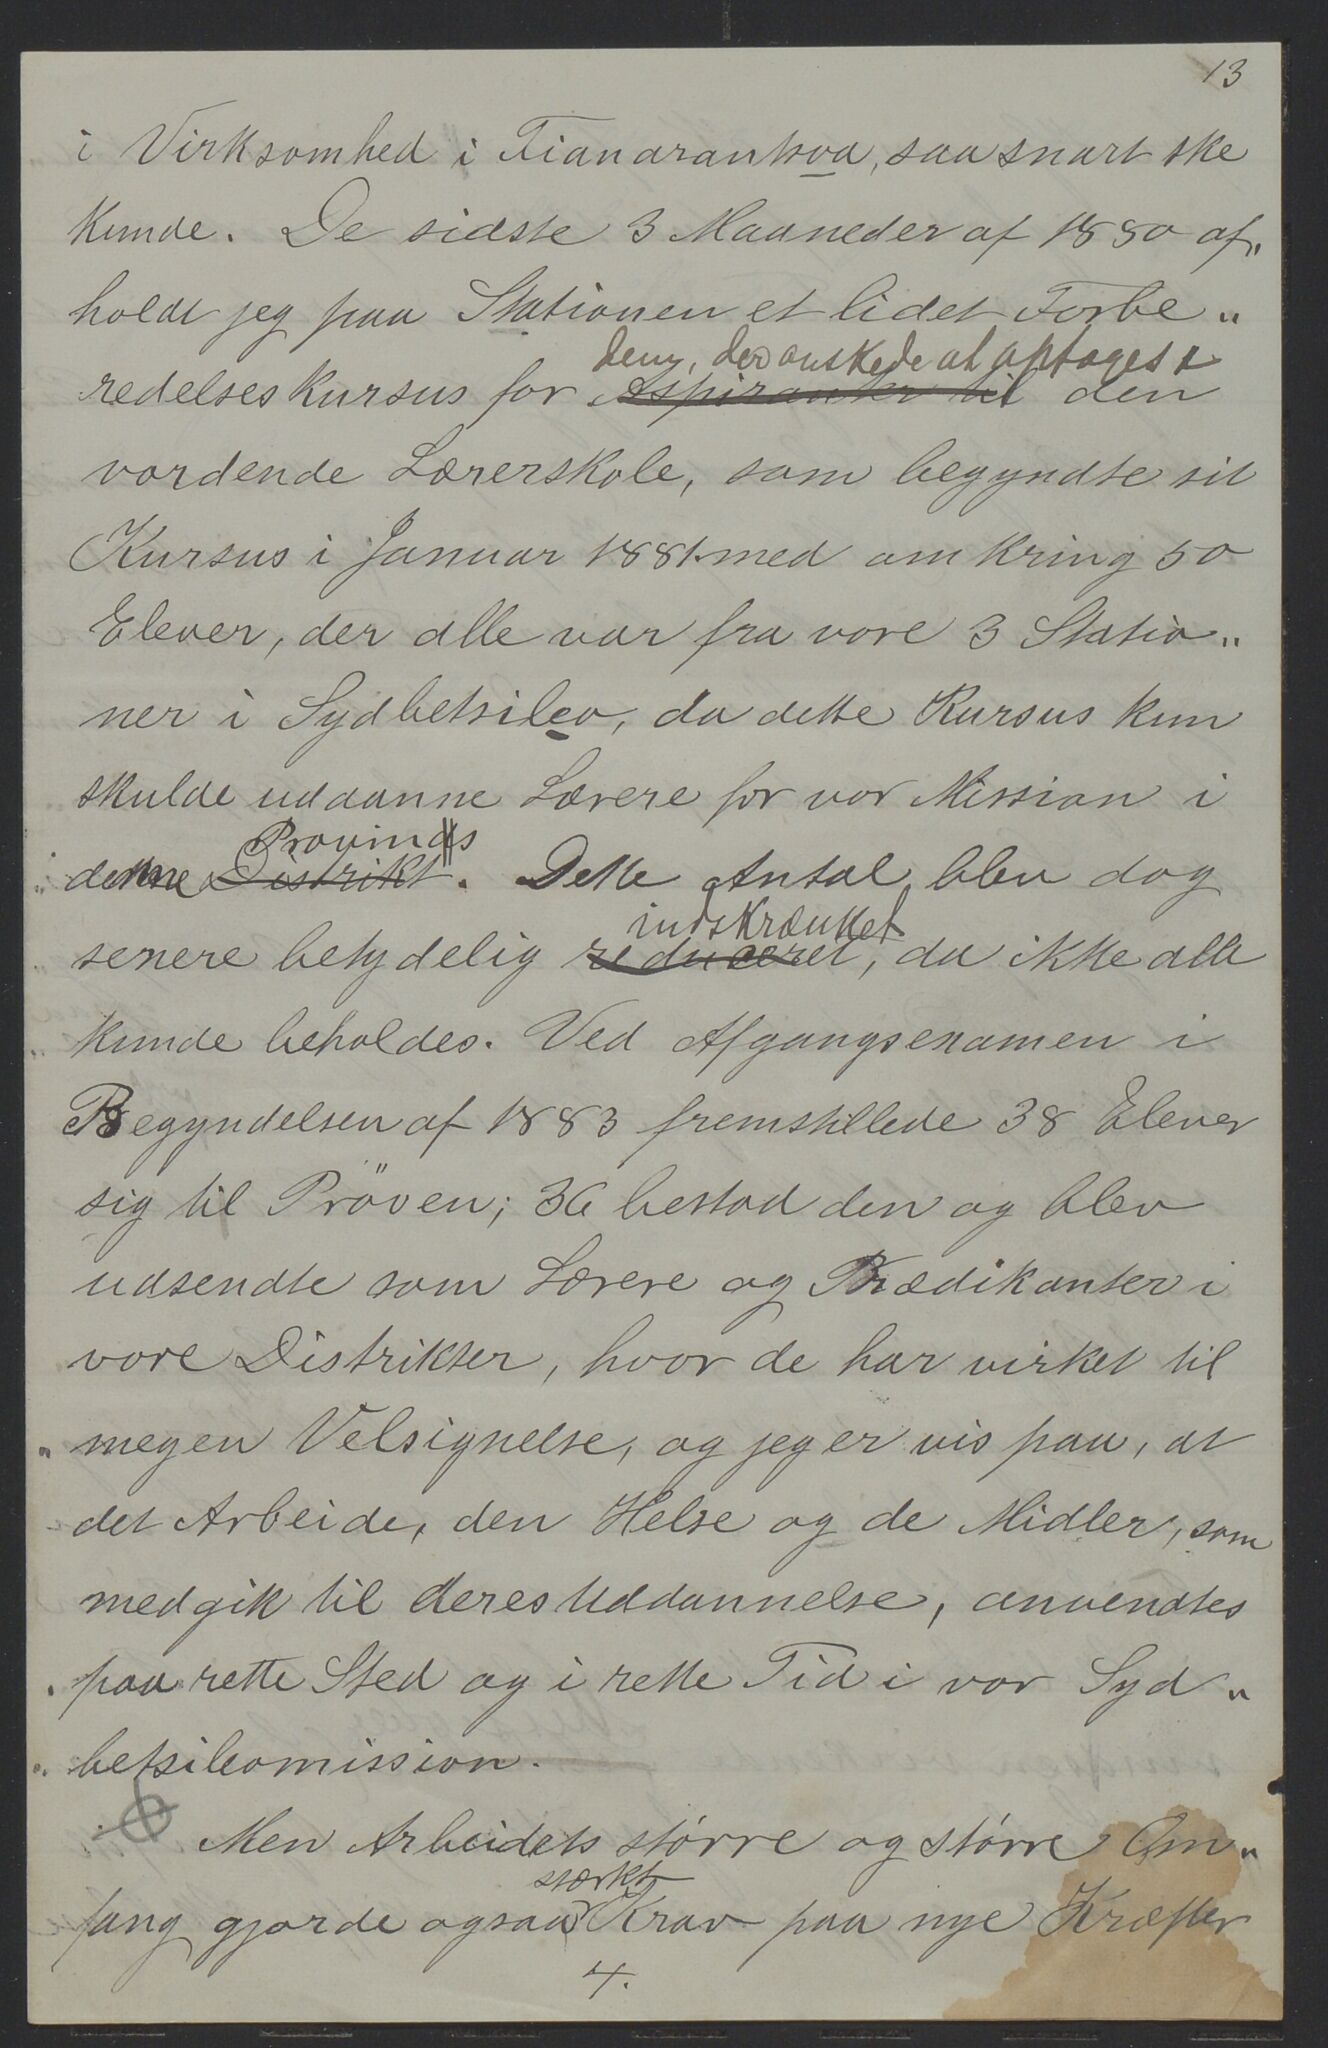 13
i Virksomhed i Fianarantsoa, saasnart ske
kunde. De sidste 3 Maaneder af 1880 af„
holdt jeg paa Stationen et lidet Forbe„
dem, der ønskede at optages i
redelseskursus for Aspiranter til den
vordende Lærerskole, som begyndte sit
Kursus i Januar 1881 med omkring 50
Elever, der alle var fra vore 3 Statio„
ner i Sydbetsileo, da dette Kursus kun
skulde uddanne Lærere for vor Mission i
Provinds
denne Distrikt. Dette Antal blev dog
indskrænket
senere betydelig reduceret, da ikke alle
kunde beholdes. Ved Afgangsexamen i
Begyndelsen af 1883 fremstillede 38 Elever
sig til Pröven; 36 bestod den og blev
udsendte som Lærere og Prædikanter i
vore Distrikter, hvor de har virket til
megen Velsignelse, og jeg er vis paa, at
det Arbeide, den Helse og de Midler, som
medgik til deres Uddannelse, anvendtes
paa rette Sted og i rette Tid i vor Syd„
betsileomission.
Men Arbeidets större og större Om„
stærkt
fang gjorde ogsaa Krav paa nye Kræfter
4.